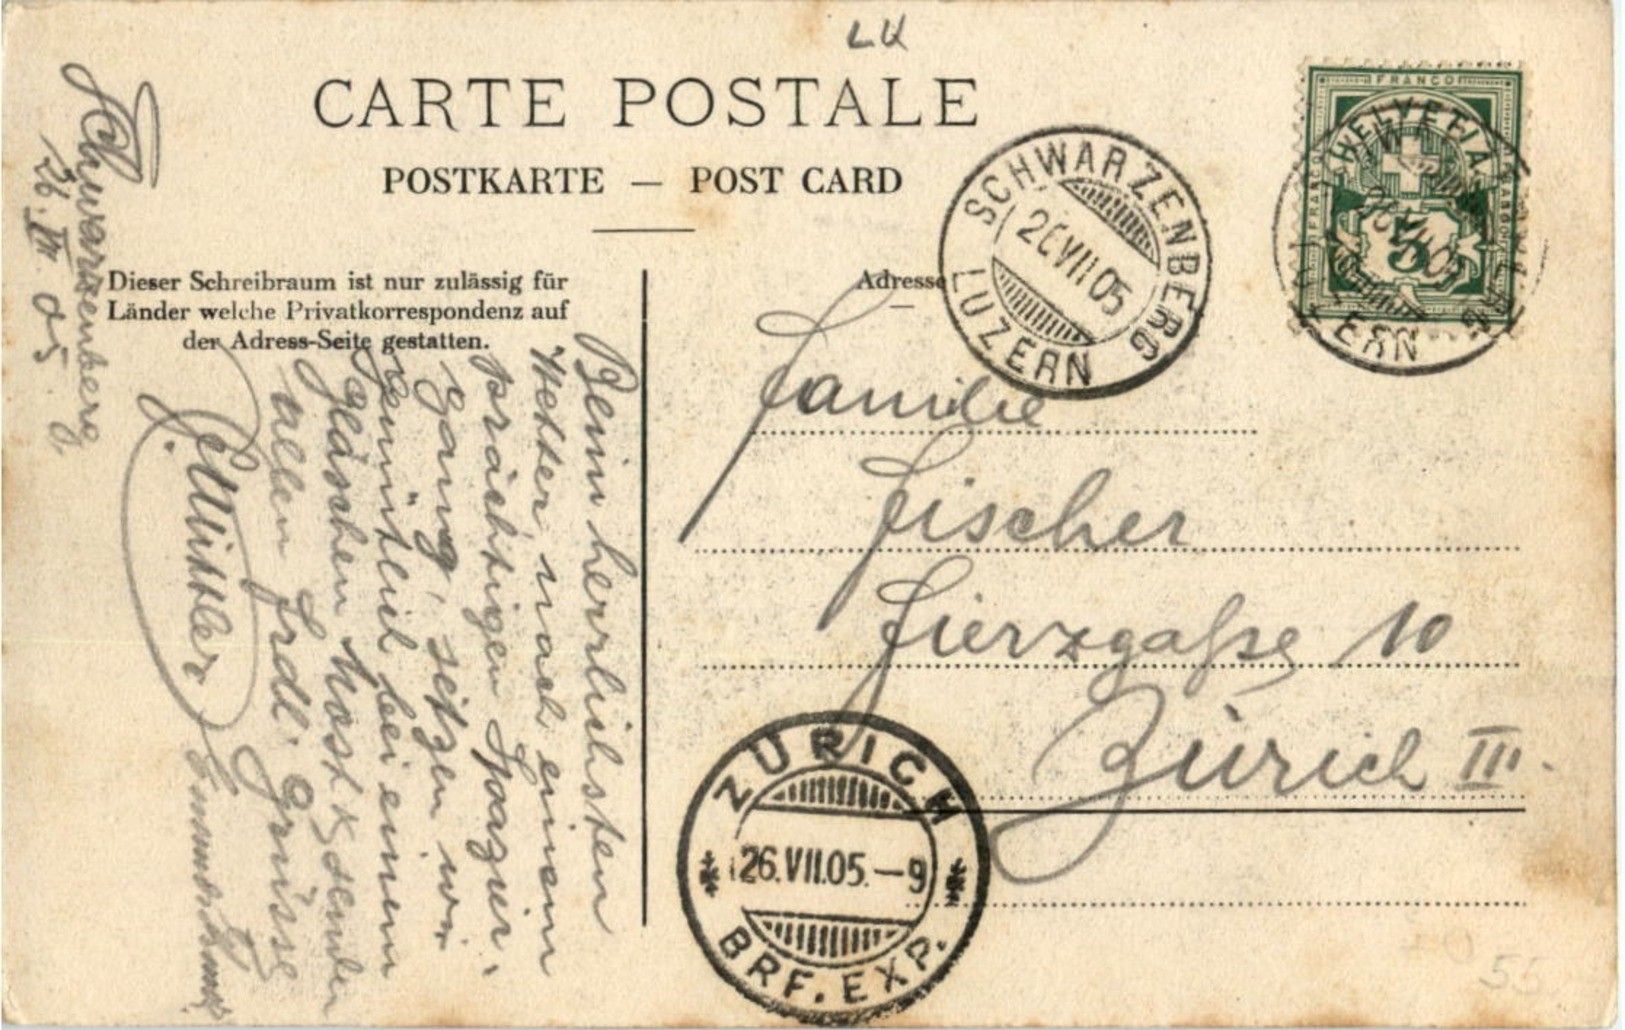 LU
CARTE POSTALE
POSTKARTE — POST CARD
Dieser Schreibraum ist nur zulässig für
Länder welche Privatkorrespondenz auf
der Adress-Seite gestatten.
Adresse
SCHWARZENBERG
26 VII 05
LUZERN
FRANCO
HELVETIA
5
Familie
Fischer
Zierzgaße 10
Zürich III.
ZÜRICH
26.VII.05.—9
BRF. EXP.
Schwarzenberg
26. VII. 05
Beim herrlichsten
Wetter nach einem
prächtigen Spazier-
gang, sitzen wir
gemütlich bei einem
Gläschen Most & senden
allen frdl. Grüsse
55